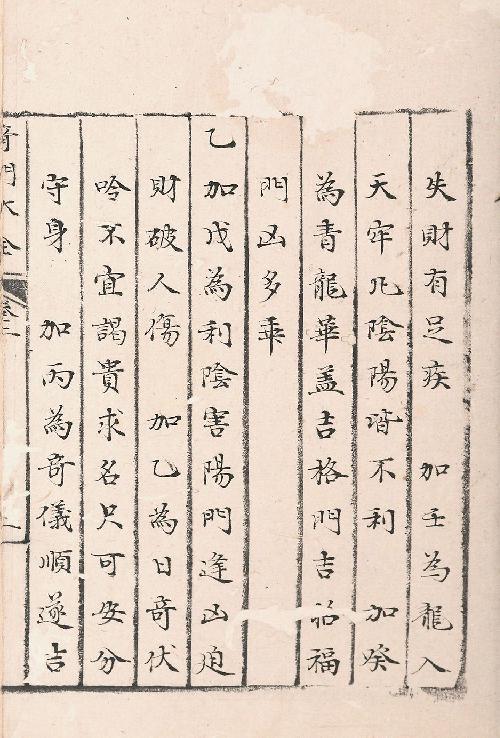 失財有足疾　加壬為龍入
天牢凡陰陽皆不利　加癸
為青龍華蓋吉格門吉招福
門凶多乖
乙加戊為利陰害陽門逢凶迫
財破人傷　加乙為日奇伏
吟不宜謁貴求名只可安分
守身　加丙為奇儀順遂吉
奇門大全　卷二
一